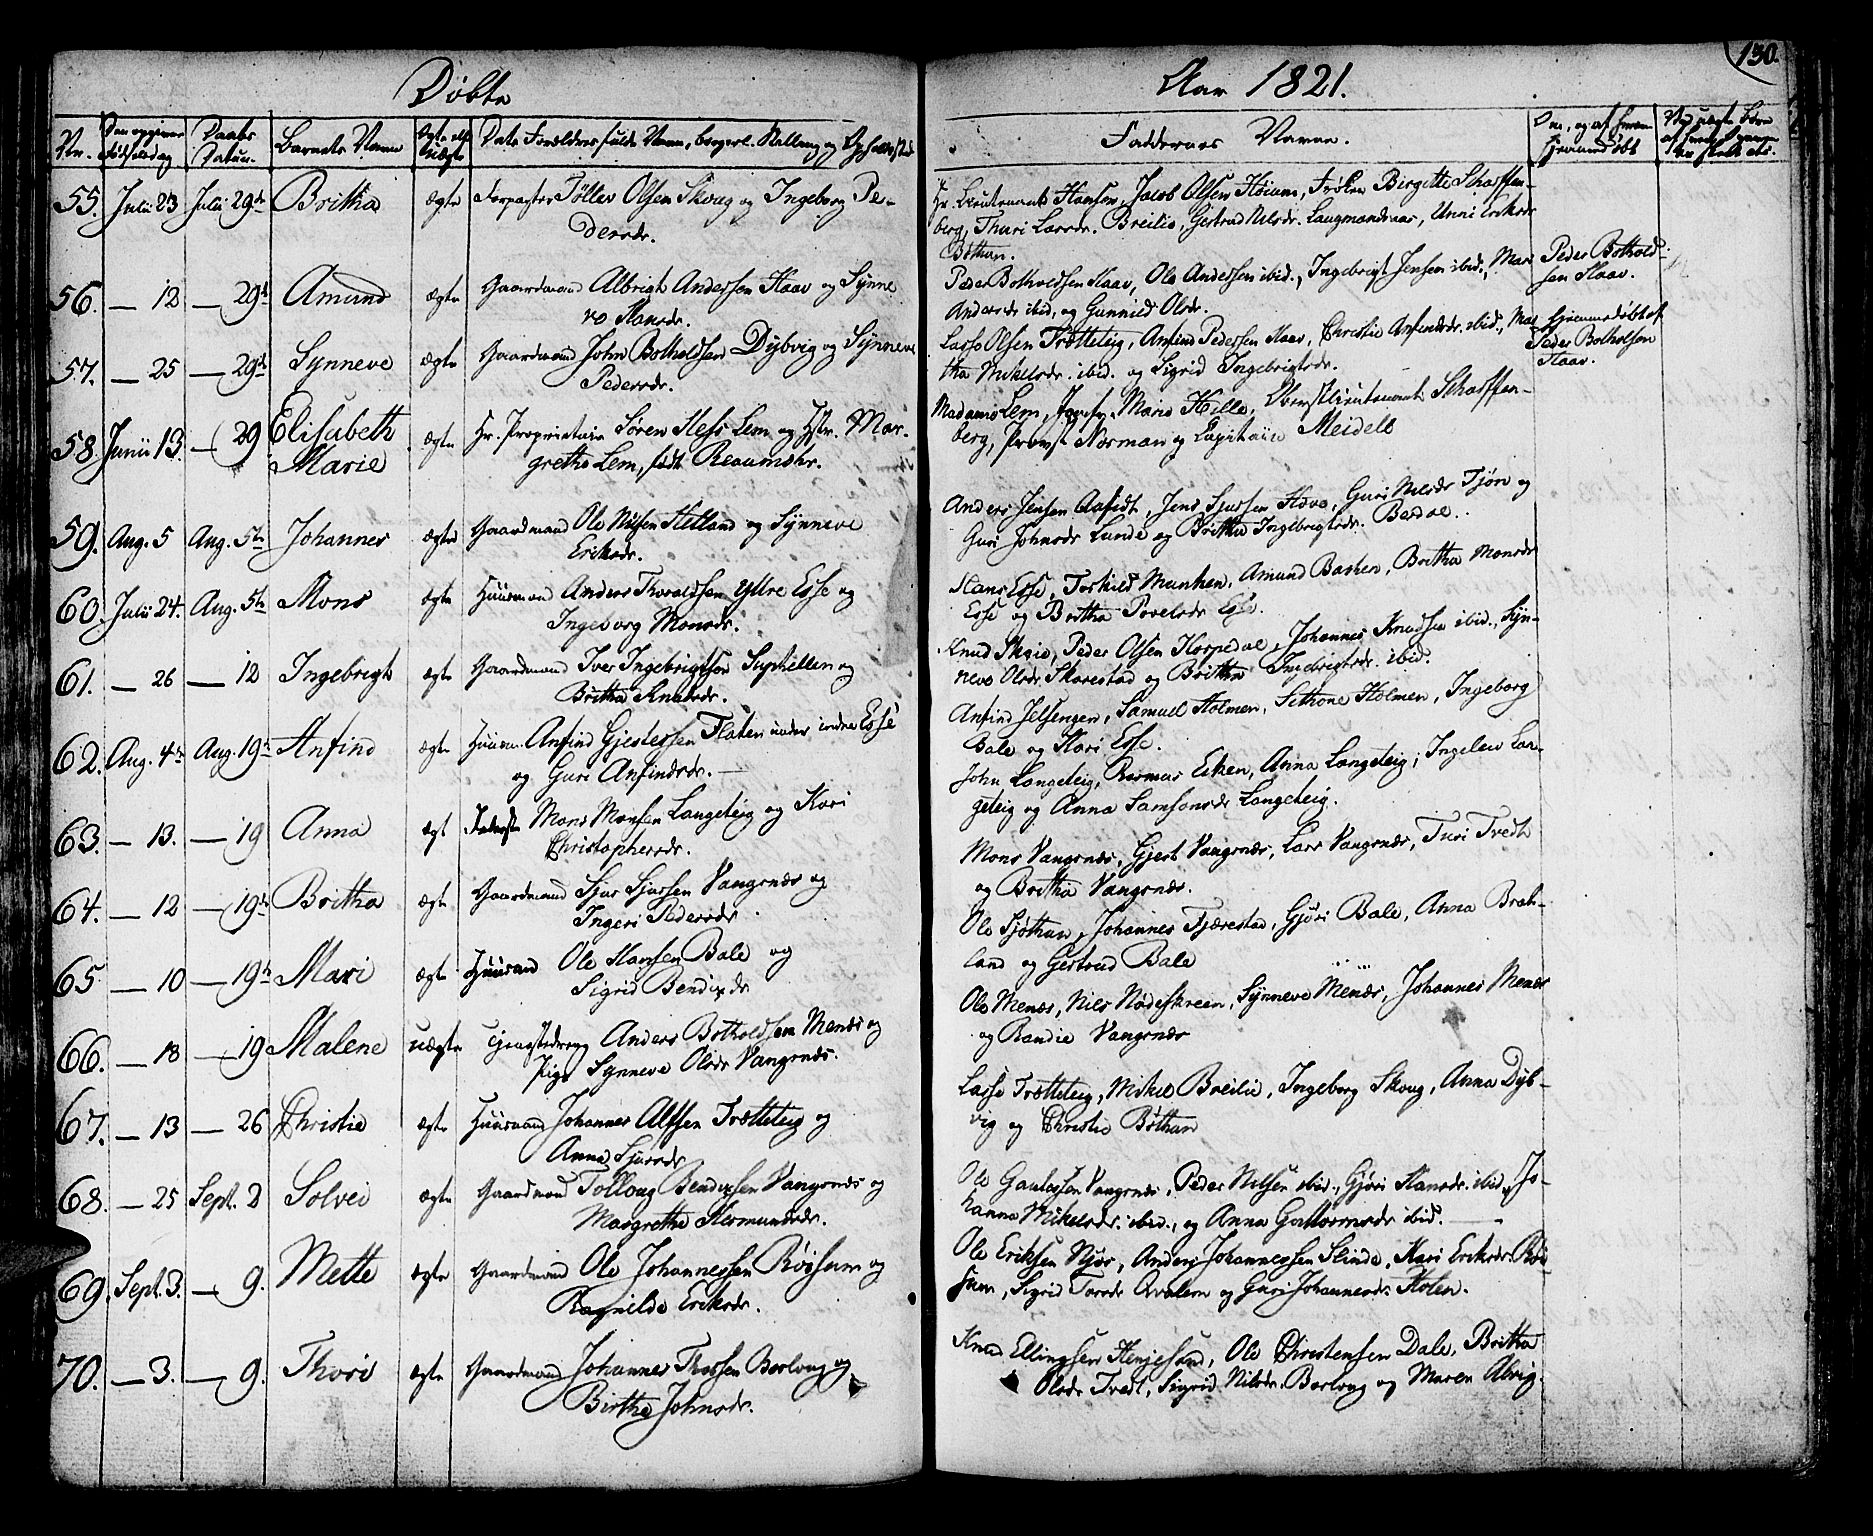 130.
Døbte
Aar 1821.
Nr.
Barnets Navn
Faddernes Navne.
55. Julii 23 Julii 29de Britha ægte Forpagter Töller Olsen Skoug og Ingeborg Pe-
dersdr.
Hr. Lieutenant Hansen, Jacob Olsen Höium, Frøken Birgitte Scharffen-
berg, Thuri Larsdr. Breilie, Gertrud Nilsdr. Laugmandnæs, Unni Eriksdr
Bøthun.
56. — 12 — 29de Amund ægte Gaardmand Albrigt Anderson Haav og Synne
ve Hansdr.
Peder Botholdsen Haav, Ole Andersen ibid., Ingebrigt Jensen ibid., Mari
Andersdr ibid, og Gunnild Olsdr.
Peder Bothold-
sen Haav.
57. — 25 — 29de Synneve ægte Gaardmand John Botholdsen Dybvig og Synneve
Pedersdr.
Lasse Olsen Trætteteig, Anfind Pedersen Haav, Christie Anfindsdr. ibid., Mar
tha Mikelsdr. ibid. og Sigrid Ingebrigtsdr.
Hjemmedøbt af
Peder Botholsen
Haav.
58. Junii 13. — 29 Elisabeth
Marie
ægte Hr. Proprietair Sören Hess Lem og Hstr. Mar-
grethe Lem, født Reaumshr.
Madame Lem, Jomfr. Marie Hille, Oberstlieutenant Scharffen-
berg, Provst Norman og Capitain Meidell
59. Aug. 5 Aug. 5te Johannes ægte Gaardmand Ole Nilsen Hetland og Synneve
Eriksdr.
Anders Jensen Aafedt, Jens Sjursen Hove, Guri Nilsdr Tjørn og
Guri Johnsdr Lunde og Britha Ingebrigtsdr. Berdal.
60. Julii 24. Aug. 5te Mons ægte Huusmand Anders Thoraldsen Yttre Esse og
Ingeborg Monsdr.
Hans Esse, Torkild Munken, Amund Barken, Britha Monsdr
Esse og Britha Povelsdr Esse.
61. — 26 — 12 Ingebrigt ægte Gaardmand Iver Ingebrigtsen Suphellen og
Britha Knudsdr.
Knud Skeie, Peder Olsen Horpedal, Johannes Knudsen ibid., Syn-
neve Olsdr Skarestad og Britha Ingebrigtsdr. ibid.
62. Aug. 4de Aug. 19de Anfind ægte Huusm. Anfind Gjestersen Flaten under indre Esse
og Guri Anfindsdr. —
Anfind Jelsengen, Samuel Holmen, Sethone Holmen, Ingeborg
Bale og Kari Esse.
63. — 13. — 19 Anna ægt Mons Monsen Langeteig og Kari
Christophersdr.
John Langeteig, Rasmus Eiken, Anna Langeteig, Ingelew Lan-
geteig og Anna Samsonsdr Langeteig.
64. — 12 — 19de Britha ægte Gaardmand Sjur Sjursen Vangsnæs og
Ingeri Pedersdr.
Mons Vangsnæs, Gjert Vangsnæs, Lars Vangsnæs, Turi Tvedt
og Britha Vangsnæs.
65 — 10 — 19de Mari ægte Huusmand Ole Hansen Bale og
Sigrid Bendixdr
Ole Sjøthun, Johannes Fjærestad, Gjöri Bale, Anna Bræk-
land og Gertrud Bale
66. — 18 — 19 Malene uægte Tjenestedreng Anders Botholdsen Menæs og
Pige Synneve Olsdr Vangsnæs.
Ole Menæs, Nils Nødeskreen, Synneve Menæs, Johannes Menæs
og Randie Vangsnæs
67. — 13 — 26 Christie ægte Huusmand Johannes Alfsen Trætteteig og
Anna Sjursdr
Lasse Trætteteig, Mikel Breilie, Ingeborg Skoug, Anna Dyb-
vig og Christie Bøthun
68. — 25 Sept. 2 Solvei ægte Gaardmand Tolloug Bendixsen Vangsnæs og
Margrethe Hermundsdr.
Ole Gautessen Vangsnæs, Peder Nilsen ibid., Gjöri Hansdr. ibid., Jo-
hanna Mikelsdr. ibid., og Anna Guttormsdr ibid. —
69. Sept. 3. — 9. Mette ægte Gaardmand Ole Johannessen Röisum og
Ragnilde Eriksdr.
Ole Eriksen Njøs, Anders Johannessen Slinde, Kari Eriksdr. Röi-
sum, Sigrid Torsdr Qvalem og Guri Johannesdr. Holen.
70. — 3. — 9. Thori ægte Gaardmand Johannes Thorsen Borloug og
Birtha Johnsdr.
Knud Ellingsen Henjesand, Ole Christensen Dale, Britha
Olsdr Tvedt, Sigrid Nilsdr. Borloug og Maren Alvig.